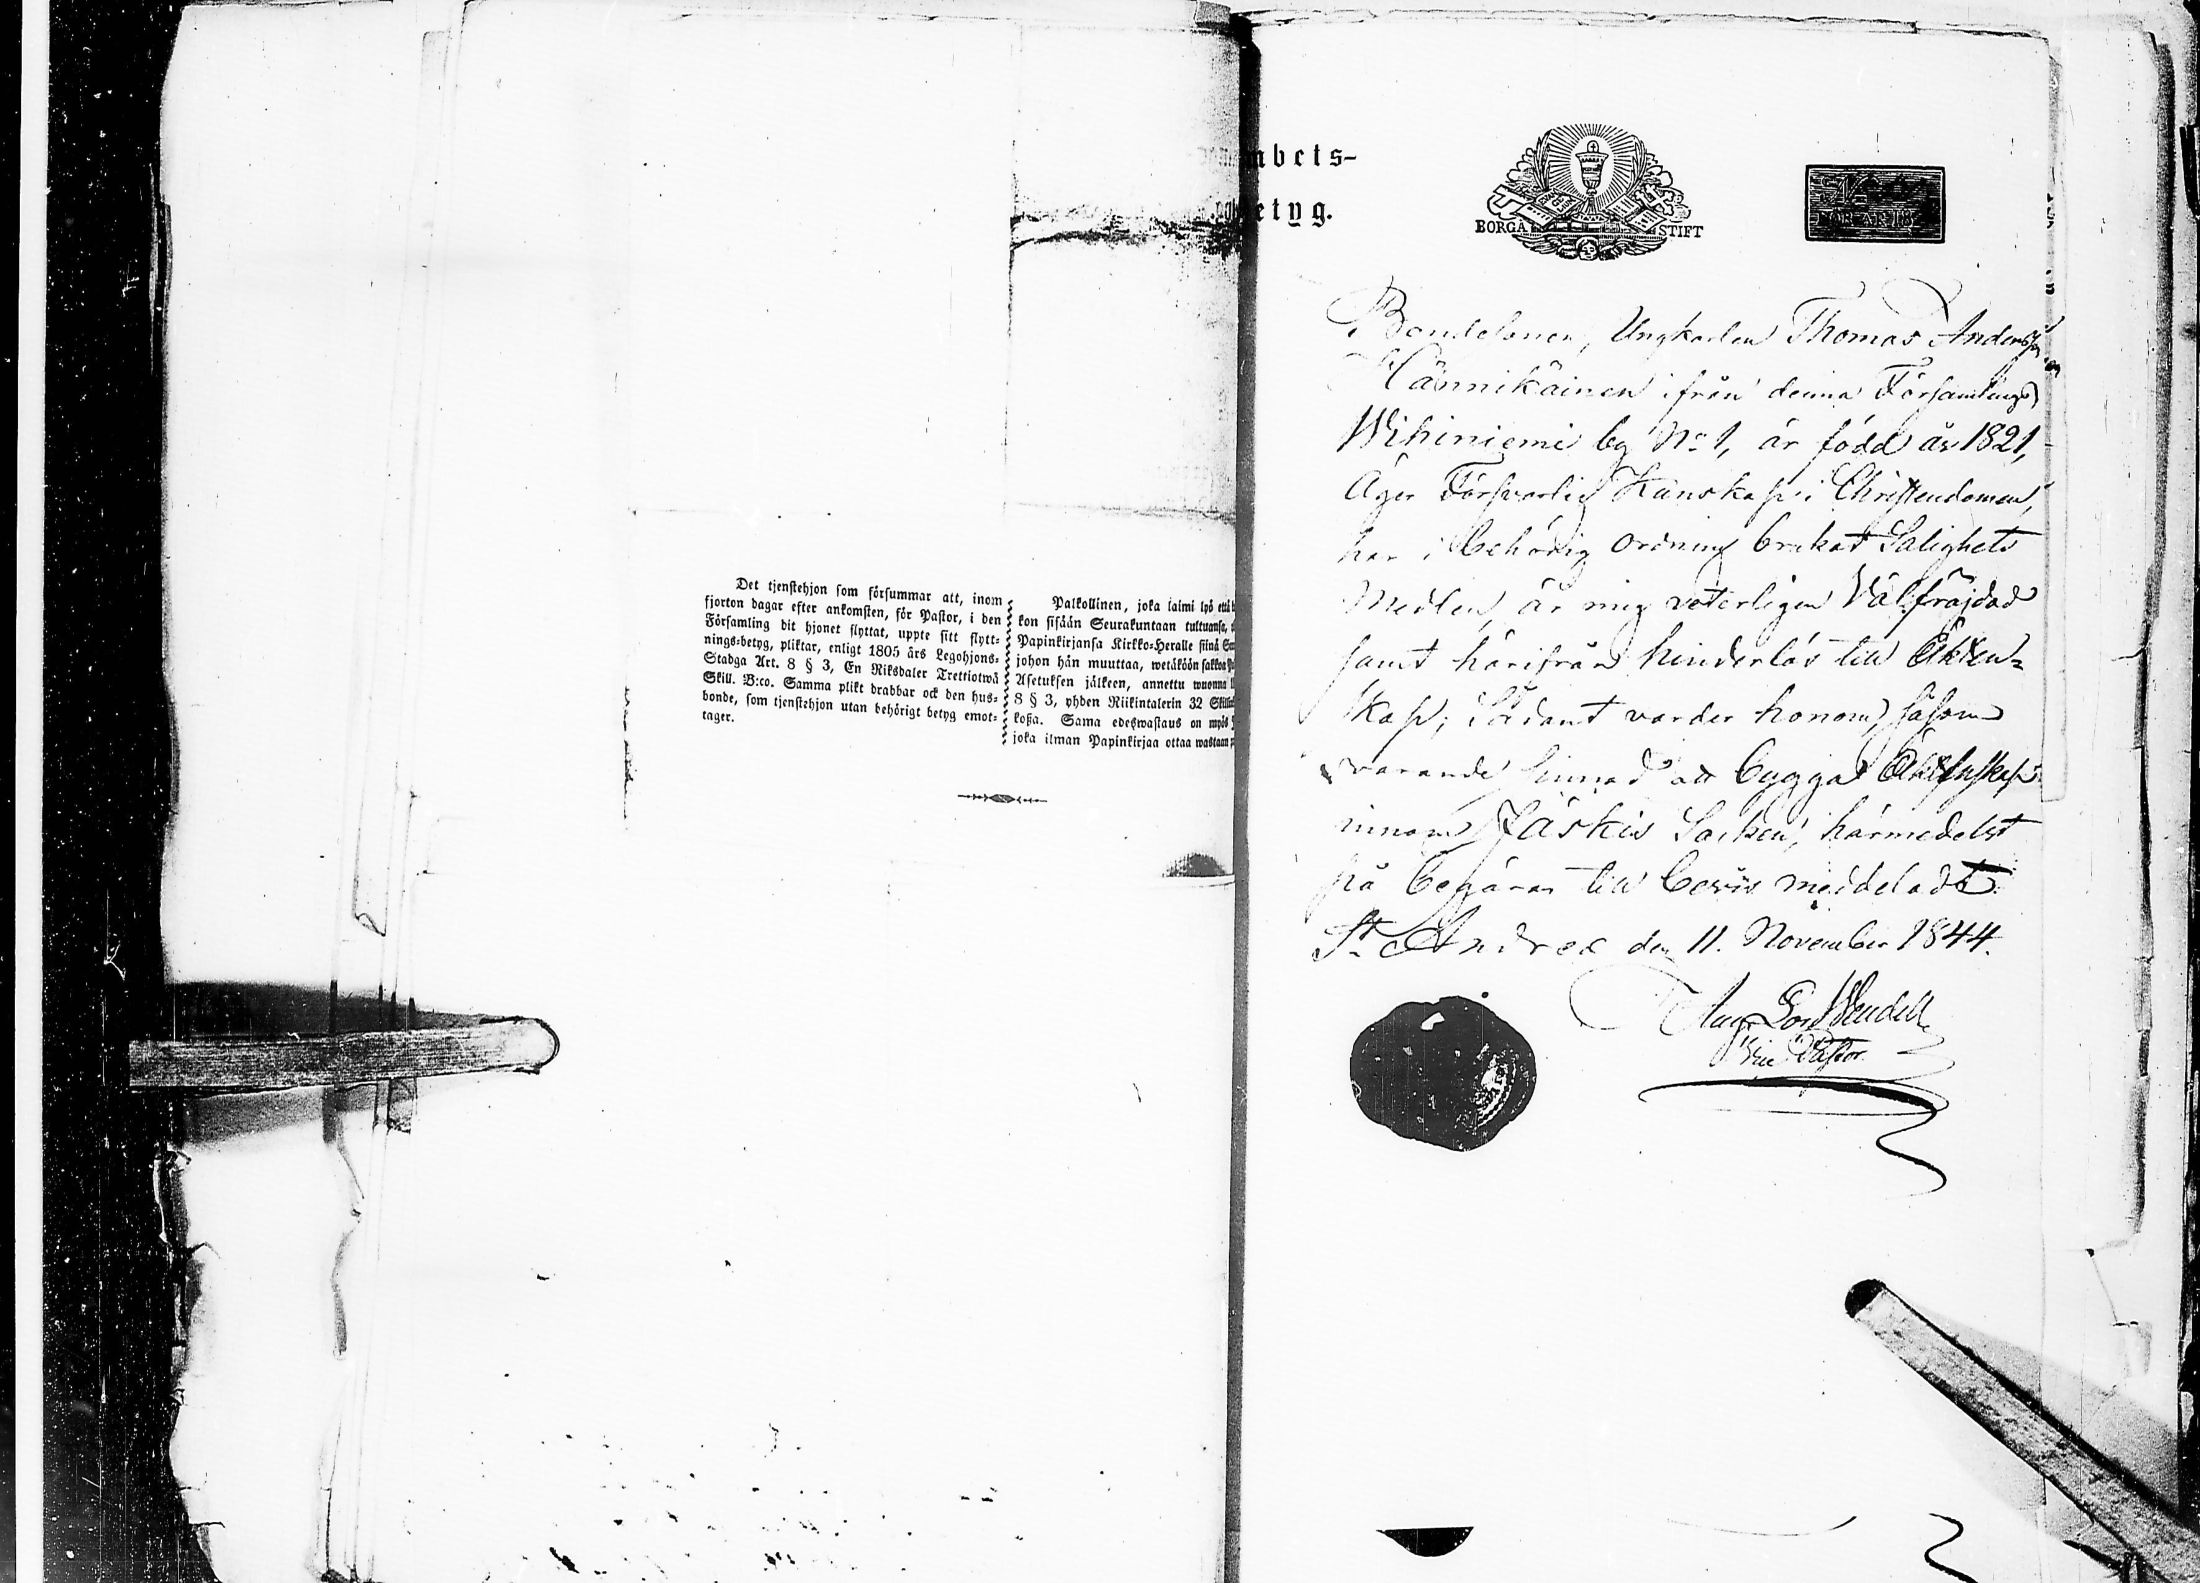 Det tjenstehjon som försummar att, inom
fjorton dagar efter ankomsten, för Pastor, i den
Församling dit hjonet flyttat, uppte sitt flytt-
nings-betyg, pliktar, enligt 1805 års Legohjons-
Stadga Art. 8 § 3, En Riksdaler Trettiotwå
Skill. B:co. Samma plikt drabbar ock den hus-
bonde, som tjenstehjon utan behörigt betyg emot-
tager.
Palkollinen, joka laimi lyö että
kon sisään Seurakuntaan tultuansa,
Papinkirjansa Kirkko-Herralle siinä
johon hän muuttaa, wetäköön sakkoa
Asetuksen jälkeen, annettu wuonna
8 § 3, yhden Riikintalerin 32
koßa. Sama edeswastaus on myös
joka ilman Papinkirjaa ottaa wastaan
mbets-
etyg.
BORGÅ STIFT
Bondesonen, Ungkarlen Thomas Andersson
Hännikäinen ifrån denna Församlings
Wihiniemi by No 1, är född år 1821,
Äger Försvarlig Kunskap i Christendomen,
har i behörig ordning brukat Salighets
Medlen, är mig veterligen Välfräjdad
samt härifrån hinderlös till Äkten-
skap; Sådant varder honom, såsom
varande sinnad att bygga Äktenskap
innom Jäskis Socken, härmedelst
på begäran till bevis meddeladt.
St Andreæ den 11. November 1844.
Wendell
Vice Pastor.